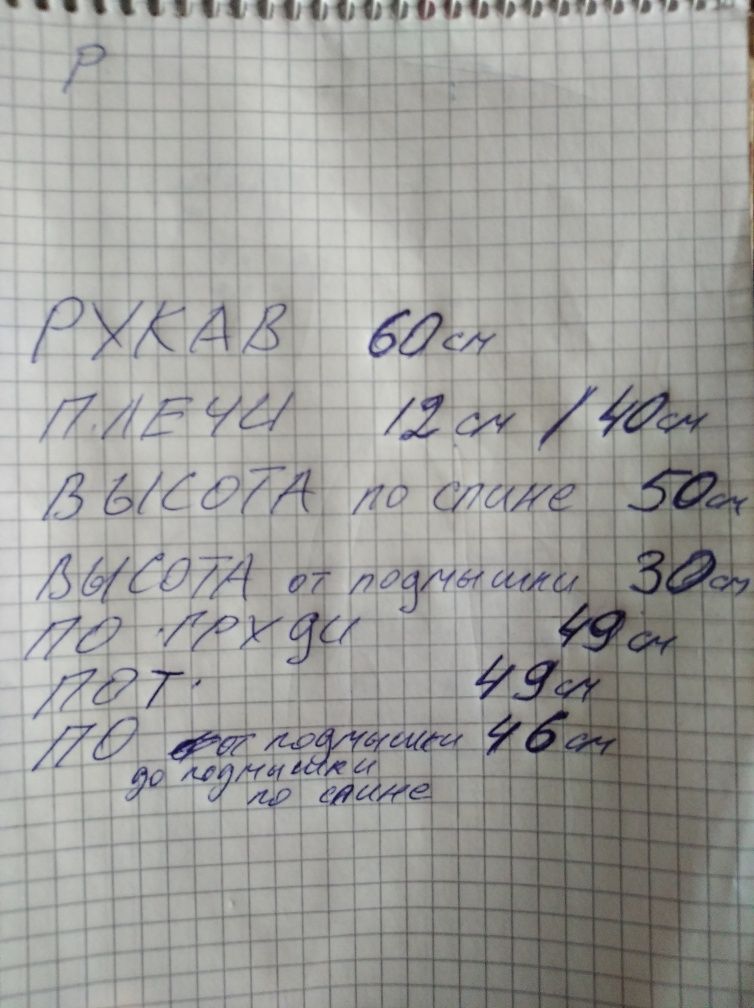 Р
РУКАВ 60 см
ПЛЕЧИ 12 см / 40 см
ВЫСОТА по спине 50 см
ВЫСОТА от подмышки 30 см
ПО ГРУДИ 49 см
ПОТ. 49 см
ПО от подмышки 46 см
до подмышки
по спине